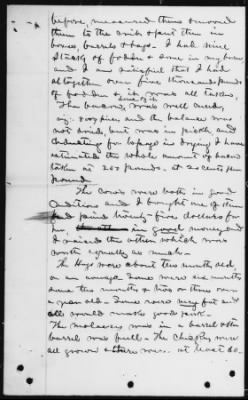 before, measured them & moved
them to the crib & put them in
boxes, barrels & bags. I had nine
stacks of fodder & some in my barn
and I am satisfied that I had
altogether over five thousand pounds
of fodder & it was all taken.
The bacon, some of it was well cured,
and the balance was
not dried, but was in pickle, and
for in drying I have
estimated the whole amount of bacon
taken at 200 pounds. at 20 cents per
pound.
The Cows were both in good
condition and I bought one of them
had paid twenty five dollars for
in good money and
I raised the other which was
worth equally as much.
The Hogs were about this month old
on an average Some were six months
some ten months & two or three over
a year old. Some were very fat and
all would make good pork.
The molasses was in a barrel & the
barrel was full. The Chickens were
all grown & there were at least 60.